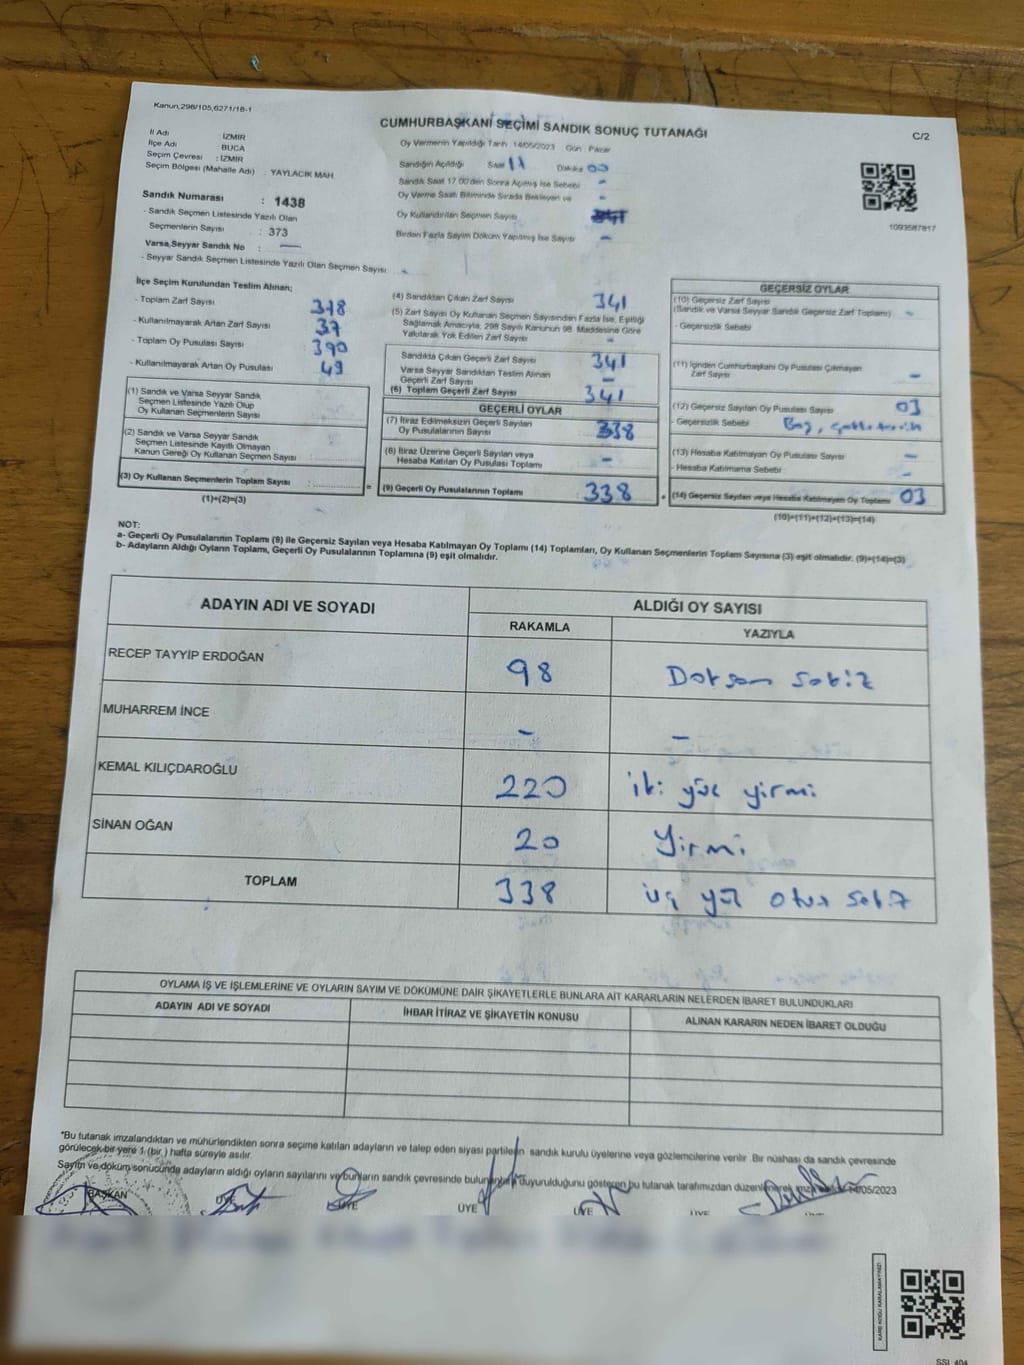 Kanun,298/105,6271/18-1
CUMHURBAŞKANI SEÇİMİ SANDIK SONUÇ TUTANAĞI
C/2
İl Adı İZMİR
İlçe Adı BUCA
Seçim Çevresi : İZMİR
Seçim Bölgesi (Mahalle Adı) : YAYLACIK MAH
Sandık Numarası : 1438
- Sandık Seçmen Listesinde Yazılı Olan
Seçmenlerin Sayısı : 373
Varsa,Seyyar Sandık No : —
- Seyyar Sandık Seçmen Listesinde Yazılı Olan Seçmen Sayısı
Oy Vermenin Yapıldığı Tarih 14/05/2023 Gün : Pazar
Sandığın Açıldığı Saat 11 Dakika 00
Sandık Saat 17.00'den Sonra Açılmış İse Sebebi -
Oy Verme Saati Bitiminde Sırada Bekleyen ve -
Oy Kullandırılan Seçmen Sayısı
Birden Fazla Sayım Döküm Yapılmış İse Sayısı -
1093587817
İlçe Seçim Kurulundan Teslim Alınan;
- Toplam Zarf Sayısı 378
- Kullanılmayarak Artan Zarf Sayısı 37
- Toplam Oy Pusulası Sayısı 390
- Kullanılmayarak Artan Oy Pusulası 49
(1) Sandık ve Varsa Seyyar Sandık
Seçmen Listesinde Yazılı Olup
Oy Kullanan Seçmenlerin Sayısı
(2) Sandık ve Varsa Seyyar Sandık
Seçmen Listesinde Kayıtlı Olmayan
Kanun Gereği Oy Kullanan Seçmen Sayısı :
(3) Oy Kullanan Seçmenlerin Toplam Sayısı :
(1)+(2)=(3)
(4) Sandıktan Çıkan Zarf Sayısı 341
(5) Zarf Sayısı Oy Kullanan Seçmen Sayısından Fazla İse, Eşitliği
Sağlamak Amacıyla, 298 Sayılı Kanunun 98. Maddesine Göre
Yakılarak Yok Edilen Zarf Sayısı -
Sandıkta Çıkan Geçerli Zarf Sayısı 341
Varsa Seyyar Sandıktan Teslim Alınan
Geçerli Zarf Sayısı -
(6) Toplam Geçerli Zarf Sayısı 341
GEÇERLİ OYLAR
(7) İtiraz Edilmeksizin Geçerli Sayılan
Oy Pusulalarının Sayısı 338
(8) İtiraz Üzerine Geçerli Sayılan veya
Hesaba Katılan Oy Pusulası Toplamı -
= (9) Geçerli Oy Pusulalarının Toplamı : 338
GEÇERSİZ OYLAR
(10) Geçersiz Zarf Sayısı
(Sandık ve Varsa Seyyar Sandık Geçersiz Zarf Toplamı) -
- Geçersizlik Sebebi
(11) İçinden Cumhurbaşkanı Oy Pusulası Çıkmayan
Zarf Sayısı -
(12) Geçersiz Sayılan Oy Pusulası Sayısı 03
- Geçersizlik Sebebi Boş,
(13) Hesaba Katılmayan Oy Pusulası Sayısı -
- Hesaba Katılmama Sebebi -
+ (14) Geçersiz Sayılan veya Hesaba Katılmayan Oy Toplamı 03
(10)+(11)+(12)+(13)=(14)
NOT:
a- Geçerli Oy Pusulalarının Toplamı (9) ile Geçersiz Sayılan veya Hesaba Katılmayan Oy Toplamı (14) Toplamları, Oy Kullanan Seçmenlerin Toplam Sayısına (3) eşit olmalıdır. (9)+(14)=(3)
b- Adayların Aldığı Oyların Toplamı, Geçerli Oy Pusulalarının Toplamına (9) eşit olmalıdır.
ADAYIN ADI VE SOYADI
ALDIĞI OY SAYISI
RAKAMLA
YAZIYLA
RECEP TAYYİP ERDOĞAN 98 Doksan sekiz
MUHARREM İNCE - -
KEMAL KILIÇDAROĞLU 220 iki yüz yirmi
SİNAN OĞAN 20 Yirmi
TOPLAM 338 üç yüz otuz sekiz
OYLAMA İŞ VE İŞLEMLERİNE VE OYLARIN SAYIM VE DÖKÜMÜNE DAİR ŞİKAYETLERLE BUNLARA AİT KARARLARIN NELERDEN İBARET BULUNDUKLARI
ADAYIN ADI VE SOYADI
İHBAR İTİRAZ VE ŞİKAYETİN KONUSU
ALINAN KARARIN NEDEN İBARET OLDUĞU
*Bu tutanak imzalandıktan ve mühürlendikten sonra seçime katılan adayların ve talep eden siyasi partilerin sandık kurulu üyelerine veya gözlemcilerine verilir .Bir nüshası da sandık çevresinde
görülecek bir yere 1 (bir ) hafta süreyle asılır.
Sayım ve döküm sonucunda adayların aldığı oyların sayılarını ve bunların sandık çevresinde duyurulduğunu gösteren bu tutanak tarafımızdan 14/05/2023
BAŞKAN ÜYE ÜYE ÜYE ÜYE ÜYE ÜYE
KARE KODU KARALAMAYINIZ!